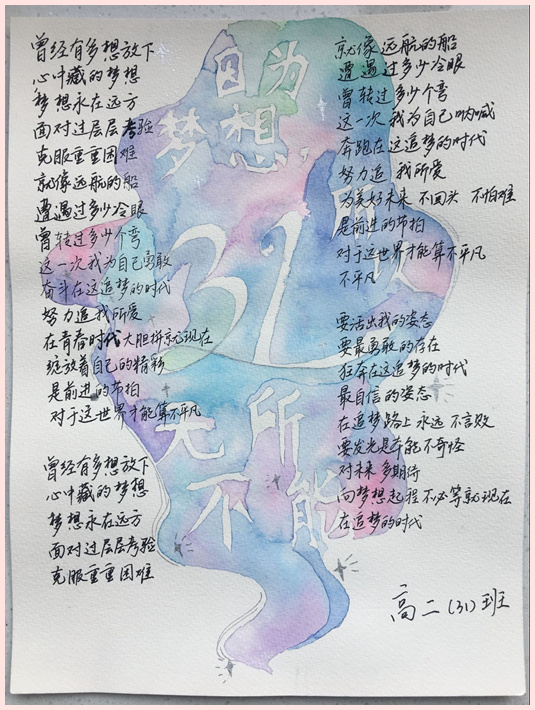 曾经有多想放下
心中藏的梦想
梦想永在远方
面对过层层考验
克服重重困难
就像远航的船
遭遇过多少冷眼
曾转过多少个弯
这一次我为自己勇敢
奋斗在这追梦的时代
努力追我所爱
在青春时代大胆拼就现在
绽放着自己的精彩
是前进的节拍
对于这世界才能算不平凡
曾经有多想放下
心中藏的梦想
梦想永在远方
面对过层层考验
克服重重困难
因为
梦想,
31
无所
不能
就像远航的船
遭遇过多少冷眼
曾转过多少个弯
这一次我为自己呐喊
奔跑在这追梦的时代
努力追 我所爱
为美好未来 不回头 不怕难
是前进的节拍
对于这世界才能算不平凡
不平凡
要活出我的姿态
要最勇敢的存在
狂奔在这追梦的时代
最自信的姿态
在追梦路上永远不言败
要发光是本能不奇怪
对未来多期待
向梦想起程不必等就现在
在追梦的时代
高二(31)班